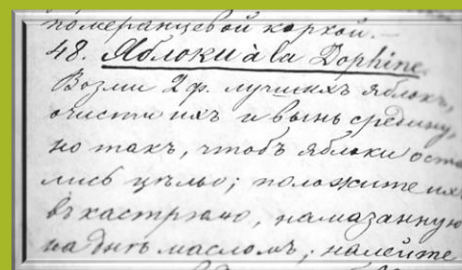 померанцевой коркой. —
48. Яблоки à la Dophine.
Возми 2 ф. лучшихъ яблокъ,
очисти ихъ и вынь средину,
но такъ, чтобъ яблоки оста
лись цѣлы; положите ихъ
въ кастрюлю, намазанную
на днѣ масломъ; налейте